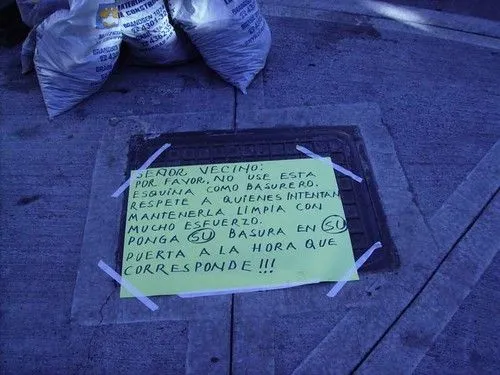 SEÑOR VECINO:
POR FAVOR, NO USE ESTA
ESQUINA COMO BASURERO.
RESPETE A QUIENES INTENTAN
MANTENERLA LIMPIA CON
MUCHO ESFUERZO.
PONGA SU BASURA EN SU
PUERTA A LA HORA QUE
CORRESPONDE!!!